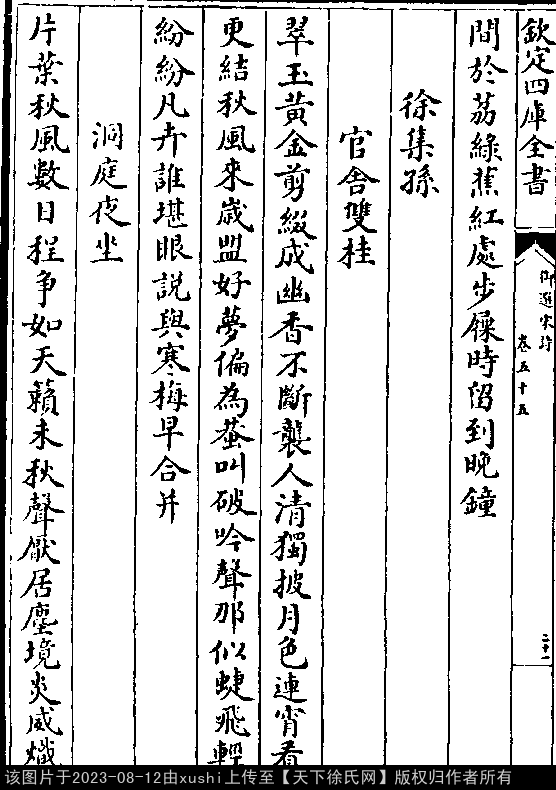 欽定四庫全書
御選宋詩
卷五十五
二十一
間於荔綠蕉紅處步屧時留到晚鐘
徐集孫
官舍雙桂
翠玉黃金剪綴成幽香不斷襲人清獨披月色連宵看
更結秋風來歲盟好夢偏為蛩叫破吟聲那似蜨飛輕
紛紛凡卉誰堪眼說與寒梅早合并
洞庭夜坐
片葉秋風數日程争如天籟未秋聲厭居塵境炎威熾
该图片于2023-08-12由xushi上传至【天下徐氏网】版权归作者所有